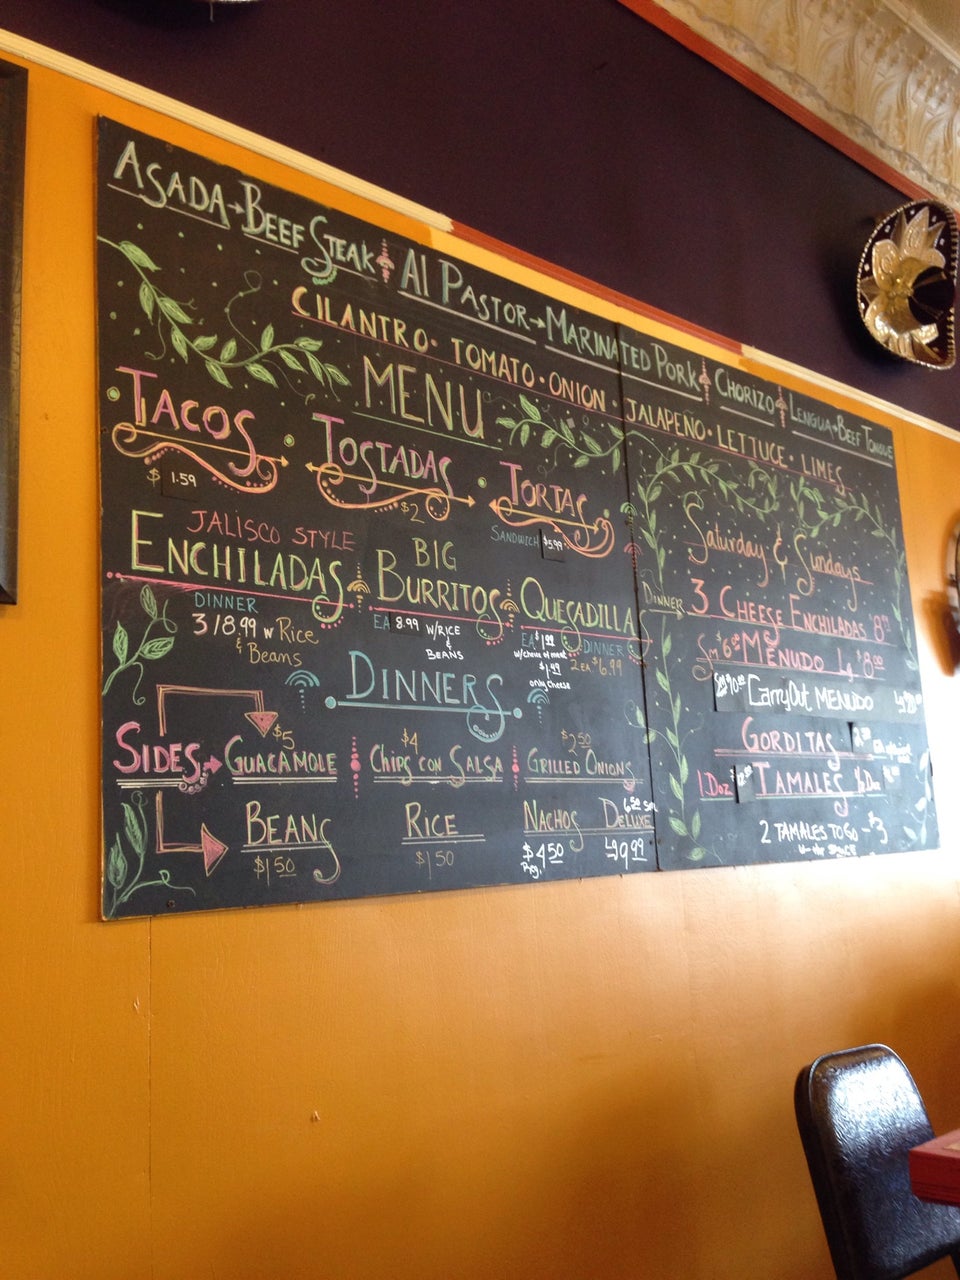 ASADA→BEEF STEAK AL PASTOR→MARINATED PORK CHORIZO LENGUA→BEEF TONGUE
CILANTRO · TOMATO · ONION · JALAPEÑO · LETTUCE · LIMES
MENU
TACOS
$ 1.59
TOSTADAS
$2
TORTAS
SANDWICH $5.99
JALISCO STYLE
ENCHILADAS
DINNER
3/8.99 w RICE
& BEANS
BIG
BURRITOS
EA 8.99 W/RICE
&
BEANS
QUESADILLA
EA
w/cheese & meat
$1.99
only cheese
DINNER
2EA $6.99
DINNERS
SIDES
$5
GUACAMOLE
$4
CHIPS CON SALSA
$2.50
GRILLED ONIONS
BEANS
$1.50
RICE
$1.50
NACHOS DELUXE
$4.50
Reg.
Lg 9.99
Saturday & Sundays
DINNER 3 CHEESE ENCHILADAS
Sm MENUDO Lg $8.00
CarryOut MENUDO
GORDITAS
1 Doz TAMALES ½ Doz
2 TAMALES TO GO - $3